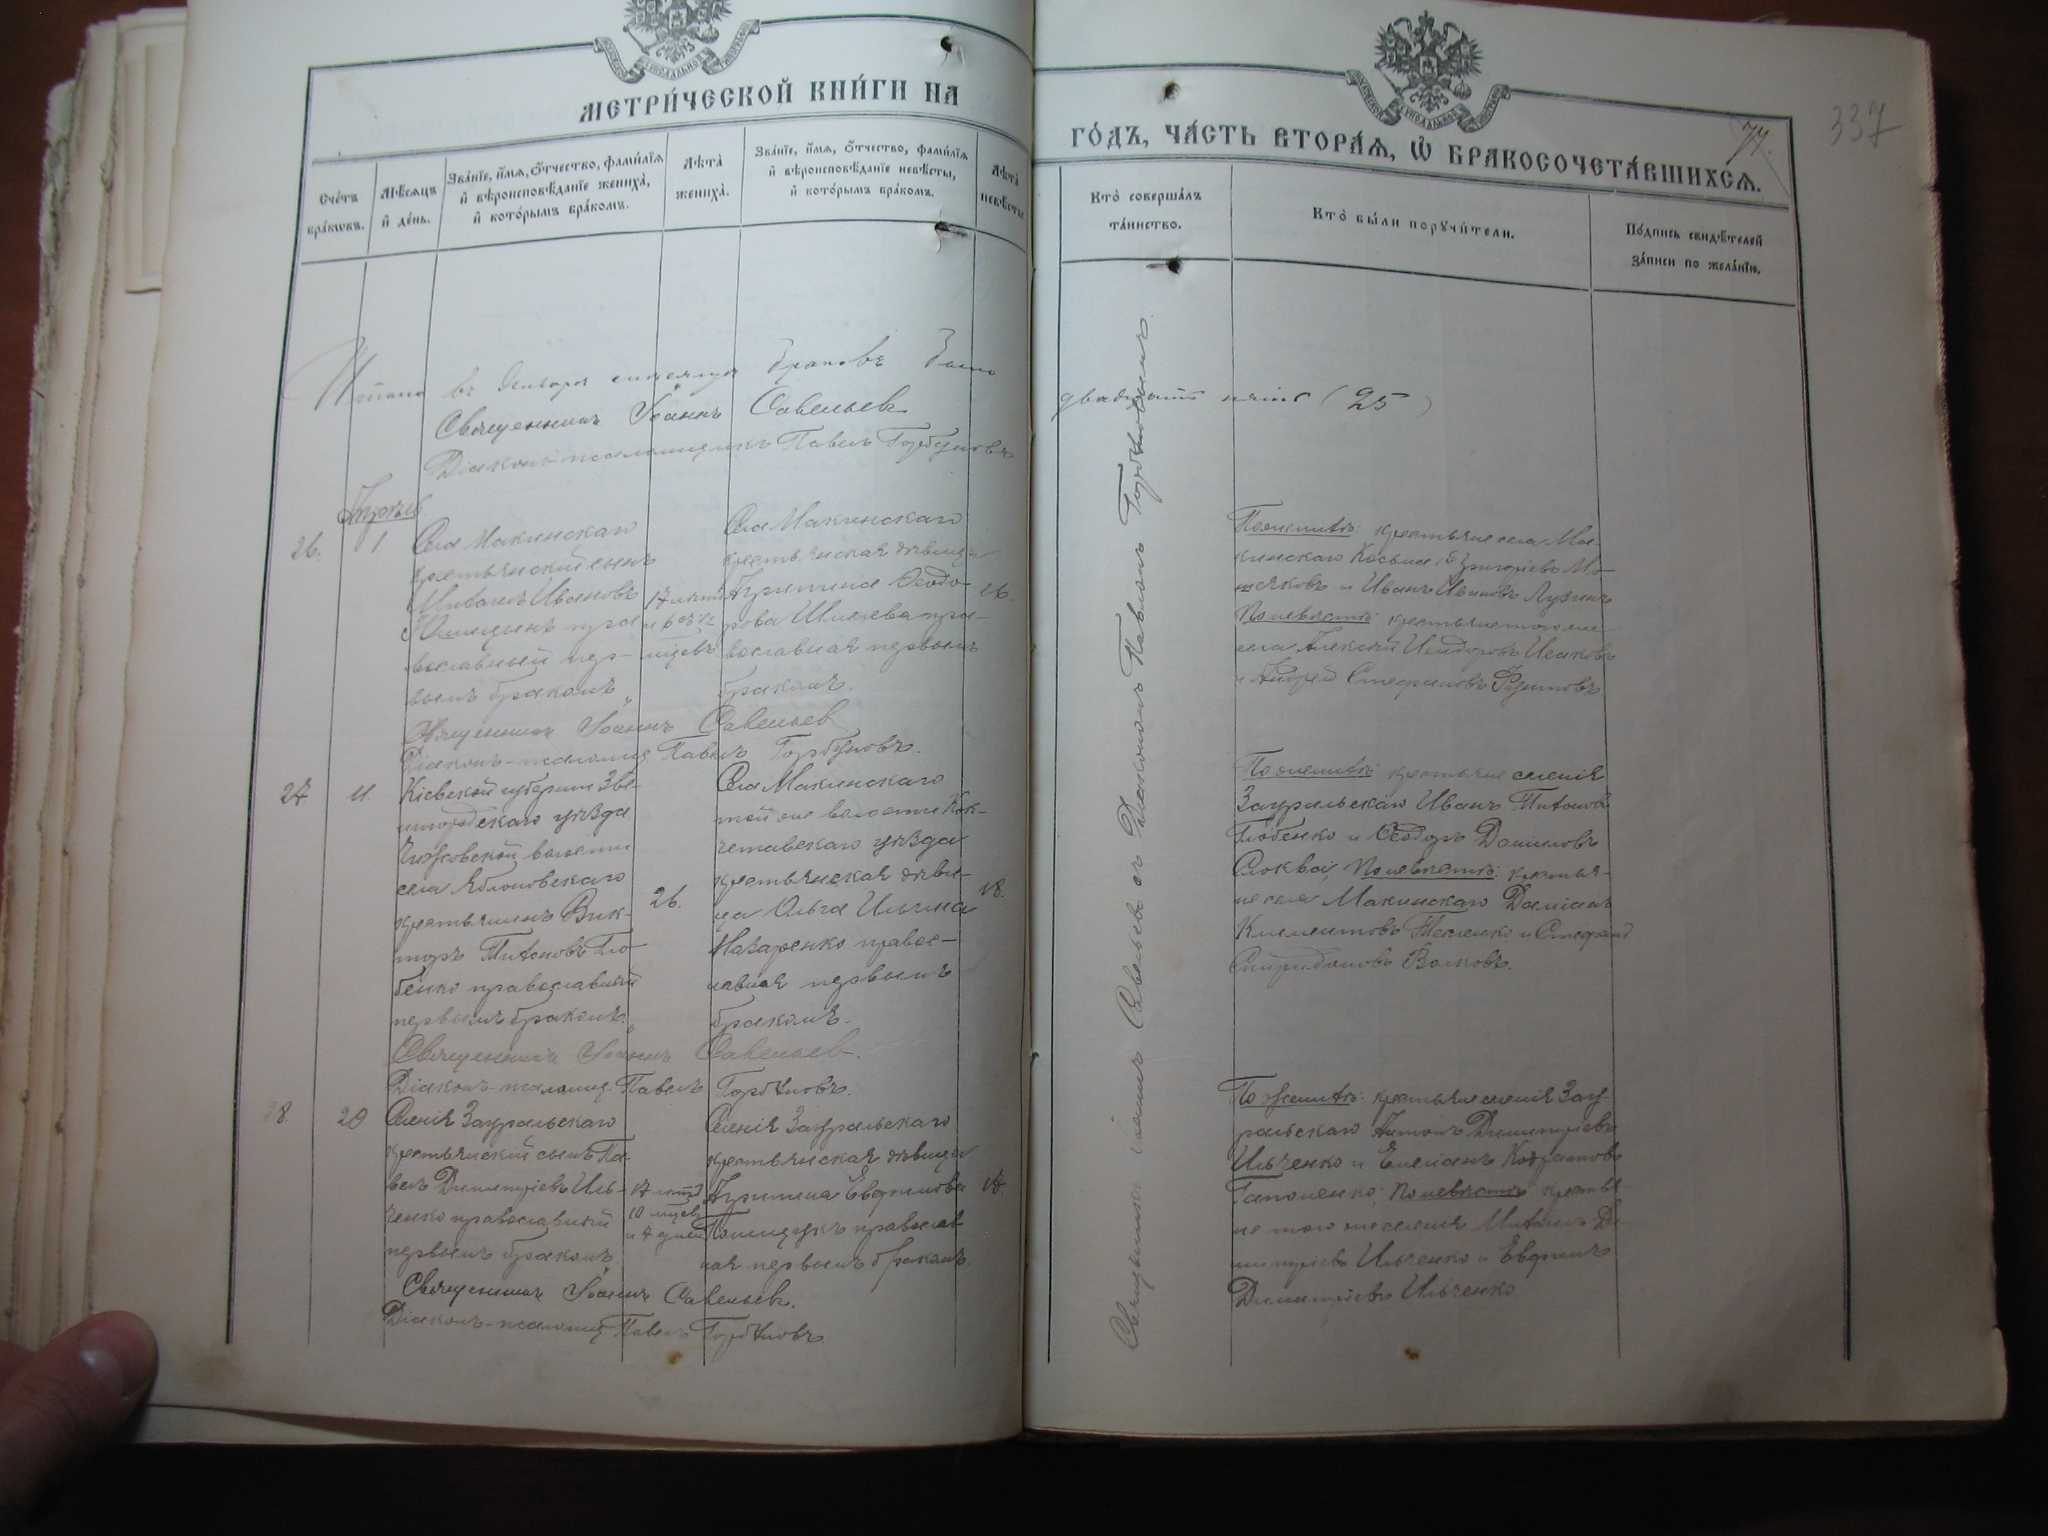 МЕТРИ́ЧЕСКОЙ КНИ́ГИ НА
ГО́ДЪ, ЧА́СТЬ ВТОРА́Ѧ, Ѡ҆ БРАКОСОЧЕТА́ВШИХСѦ.
74.
337
Сче́тъ бра́кѡвъ.
Мѣ́сяцъ и҆ де́нь.
Зва́нїе, и҆́мѧ, ѻ҆́тчество, фами́лїѧ
и҆ вѣроисповѣ́данїе жениха̀,
и҆ кото́рымъ бра́комъ.
Лѣ́та жениха̀.
Зва́нїе, и҆́мѧ, ѻ҆́тчество, фами́лїѧ
и҆ вѣроисповѣ́данїе невѣ́сты,
и҆ кото́рымъ бра́комъ.
Лѣ́та невѣ́сты
Кто̀ соверша́лъ
та́инство.
Кто̀ бы́ли порꙋчи́тели.
По́дпись свидѣ́телей
за́писи по жела́нїю.
Итого въ Январѣ мѣсяцѣ браковъ было
двадцать пять (25)
Священникъ Іоаннъ Савельевъ
Діаконъ-псаломщикъ Павелъ Горбуновъ
26.
1
Села Макинскаго
крестьянскій сынъ
Ивановъ
православный пер-
вымъ бракомъ
17 лѣтъ
и 6
мѣсяцевъ
Села Макинскаго
крестьянская дѣвица
Агрипина Ѳеодо-
рова Шмелева пра-
вославная первымъ
бракомъ.
26.
По женихѣ: крестьяне села Ма-
кинскаго Косьма Григоріевъ Мо-
и Иванъ Ивановъ Лузинъ
По невѣстѣ: крестьяне того же
села Алексѣй Исидоровъ Исаковъ
и Андрей Стефановъ
Священникъ Іоаннъ Савельевъ
Діаконъ-псаломщ. Павелъ Горбуновъ.
27.
11.
Кіевской губерніи Зве-
нигородскаго уѣзда
волости
села Яблоновскаго
крестьянинъ Вик-
торъ Титовъ Гло-
бенко православный
первымъ бракомъ.
26.
Села Макинскаго
той же волости Кок-
четавскаго уѣзда
крестьянская дѣви-
ца Ольга Ильина
Назаренко правос-
лавная первымъ
бракомъ.
18.
По женихѣ: крестьяне селенія
Зауральскаго Иванъ Титовъ
Глобенко и Ѳеодоръ Даниловъ
По невѣстѣ: крестья-
не села Макинскаго Даміанъ
Климентовъ и Стефанъ
Спиридоновъ Волковъ.
Священникъ Іоаннъ Савельевъ.
Діаконъ-псаломщ. Павелъ Горбуновъ.
28.
29
Селенія Зауральскаго
крестьянскій сынъ Па-
велъ Димитріевъ Иль-
ченко православный
первымъ бракомъ
17 лѣтъ
10 мѣсяцевъ
и 4 дней
Селенія Зауральскаго
крестьянская дѣвица
Агрипина Евфимова
православ-
ная первымъ бракомъ.
По женихѣ: крестьяне селенія Зау-
ральскаго Антонъ Димитріевъ
Ильченко и Емеліанъ Кодратовъ
Гапоненко; По невѣстѣ: крестья-
не того же селенія Ди-
митріевъ Ильченко и Евфимъ
Димитріевъ Ильченко.
Священникъ Іоаннъ Савельевъ.
Діаконъ-псаломщ. Павелъ Горбуновъ
Священникъ Іоаннъ Савельевъ съ Діакономъ Павломъ Горбуновымъ.